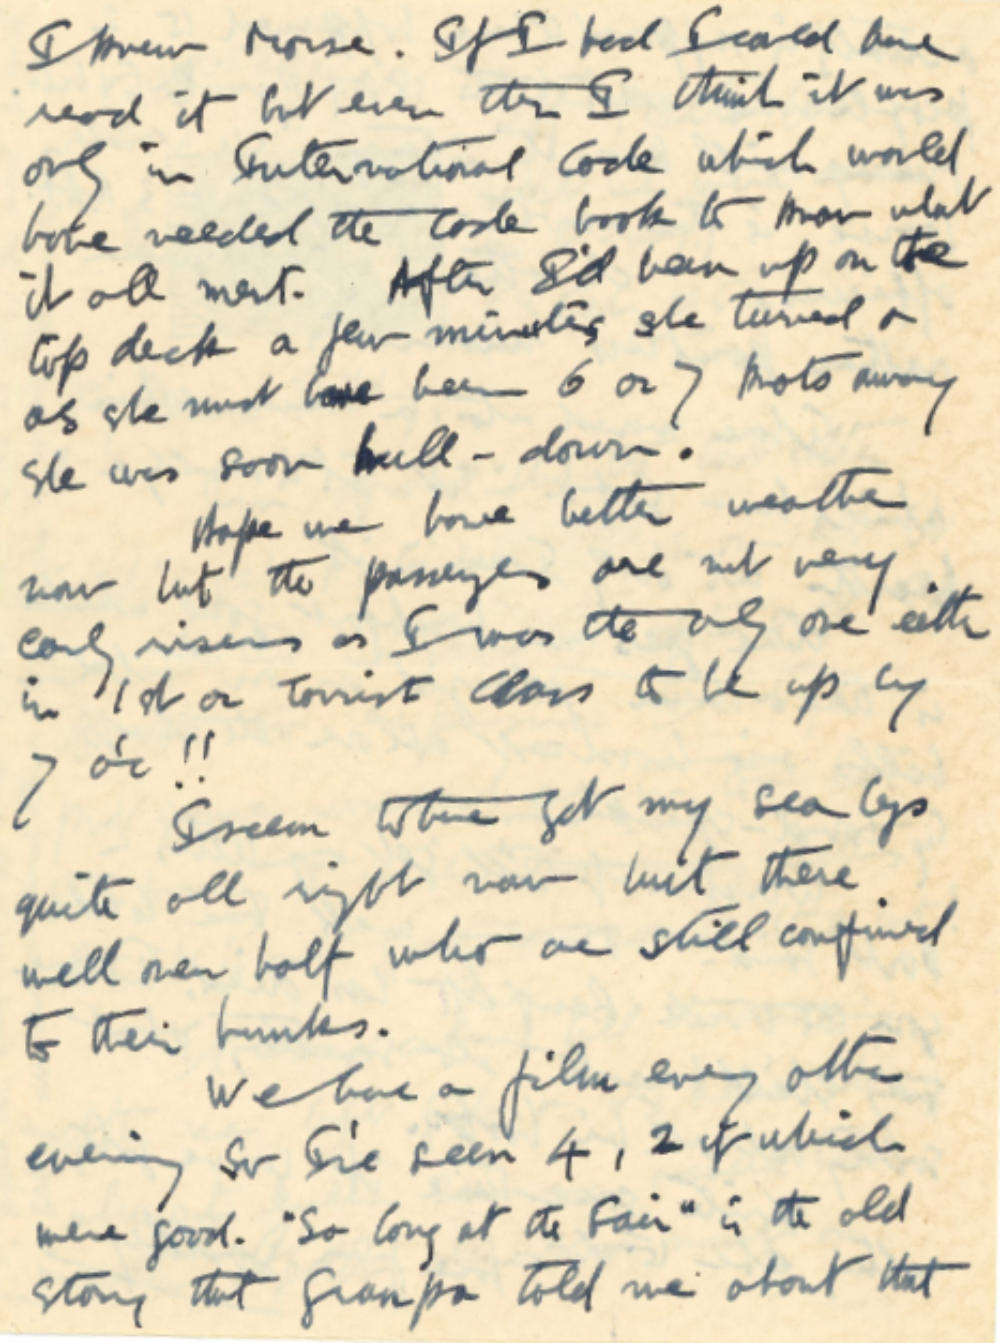 I knew Morse. If I had I could have
read it but even then I think it was
only in International Code which would
have needed the code book to know what
it all ment. After I'd been up on the
top deck a few minutes she turned &
as she must have been 6 or 7 knots away
she was soon hull-down.
Hope we have better weather
now but the passengers are not very
early risers as I was the only one either
in 1st or Tourist Class to be up by
7 o'c !!
I seem to have got my sea legs
quite all right now but there
well over half who are still confined
to their bunks.
We have a film every other
evening so I've seen 4, 2 of which
were good. "So long at the Fair" is the old
story that Grampa told me about that